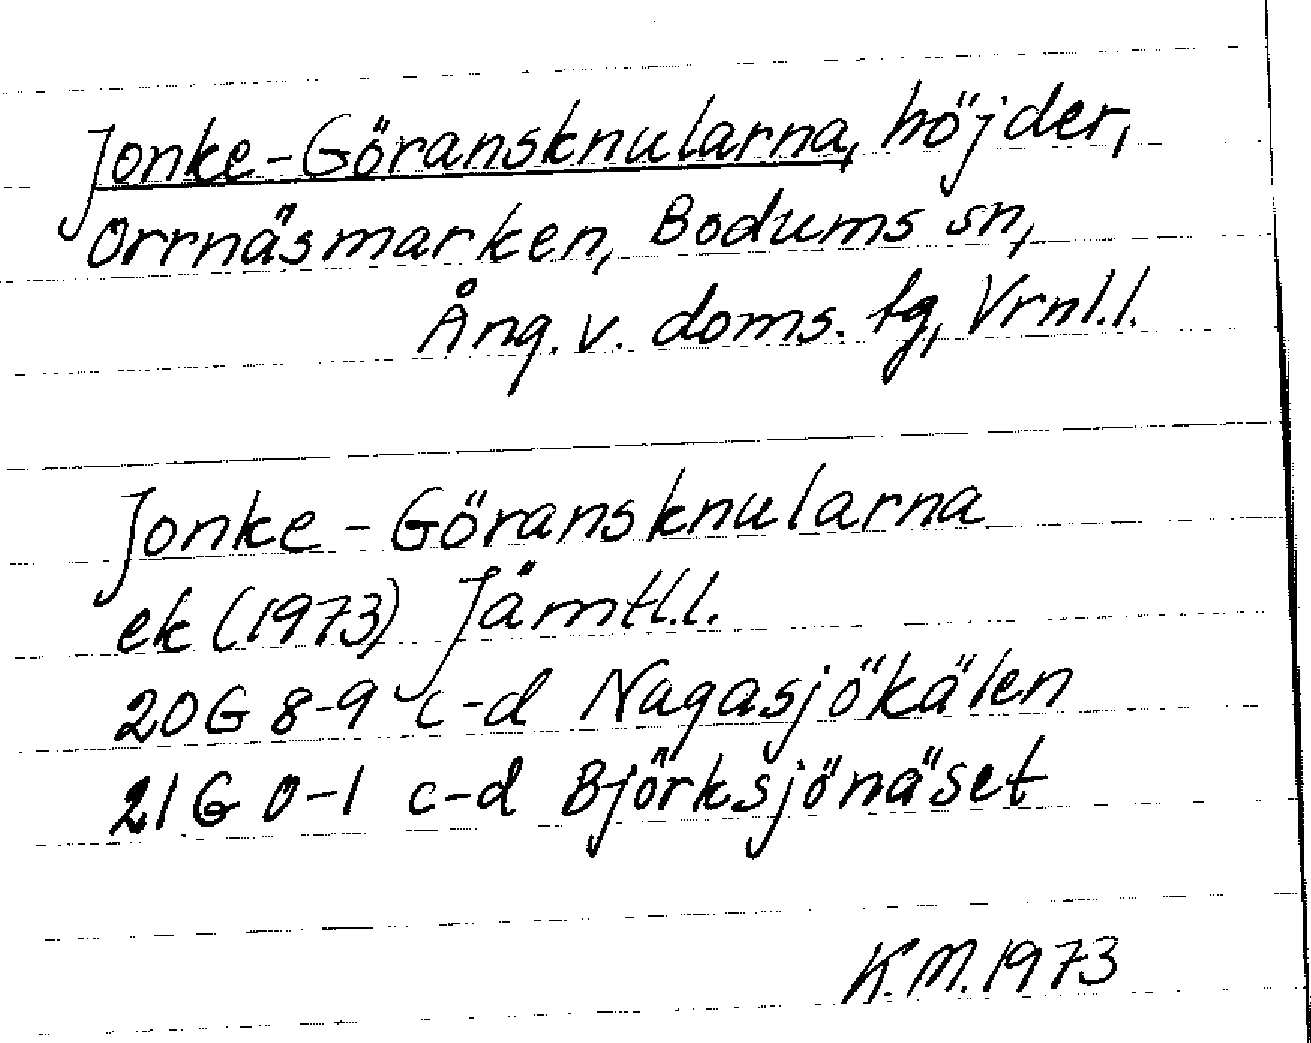 Jonke-Göransknularna, höjder,
Orrnäsmarken, Bodums sn,
Ång. v. doms. fg, Vrnl.l.
Jonke-Göransknularna
ek (1973) Jämtl.l.
20G 8-9 c-d Nagasjökälen
21G 0-1 c-d Björksjönäset
K.M. 1973